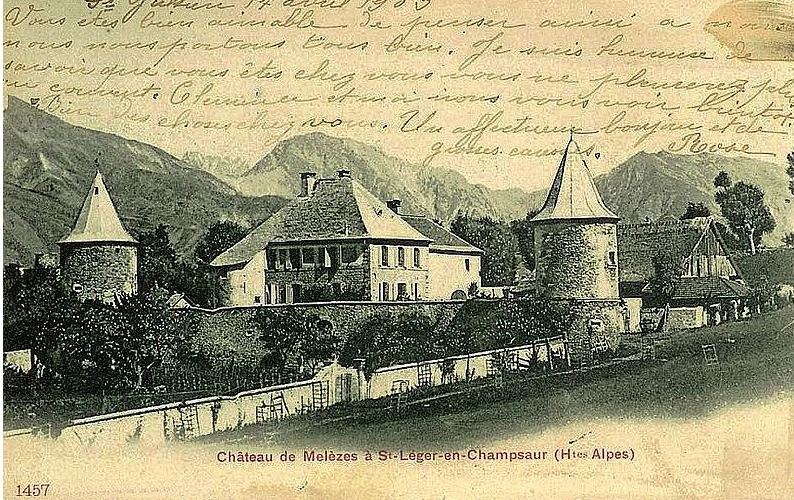 17 avril 1903
Vous êtes bien aimable de penser ainsi a nous
nous nous portons tous bien. Je suis heureuse de
savoir que vous êtes chez vous vous ne pleurerez plus
au couvent. Clemence et moi nous vous voir bientot
Bien des choses chez vous. Un affectueux bonjour et de
Rose
Château de Melèzes à St-Léger-en-Champsaur (Htes Alpes)
1457